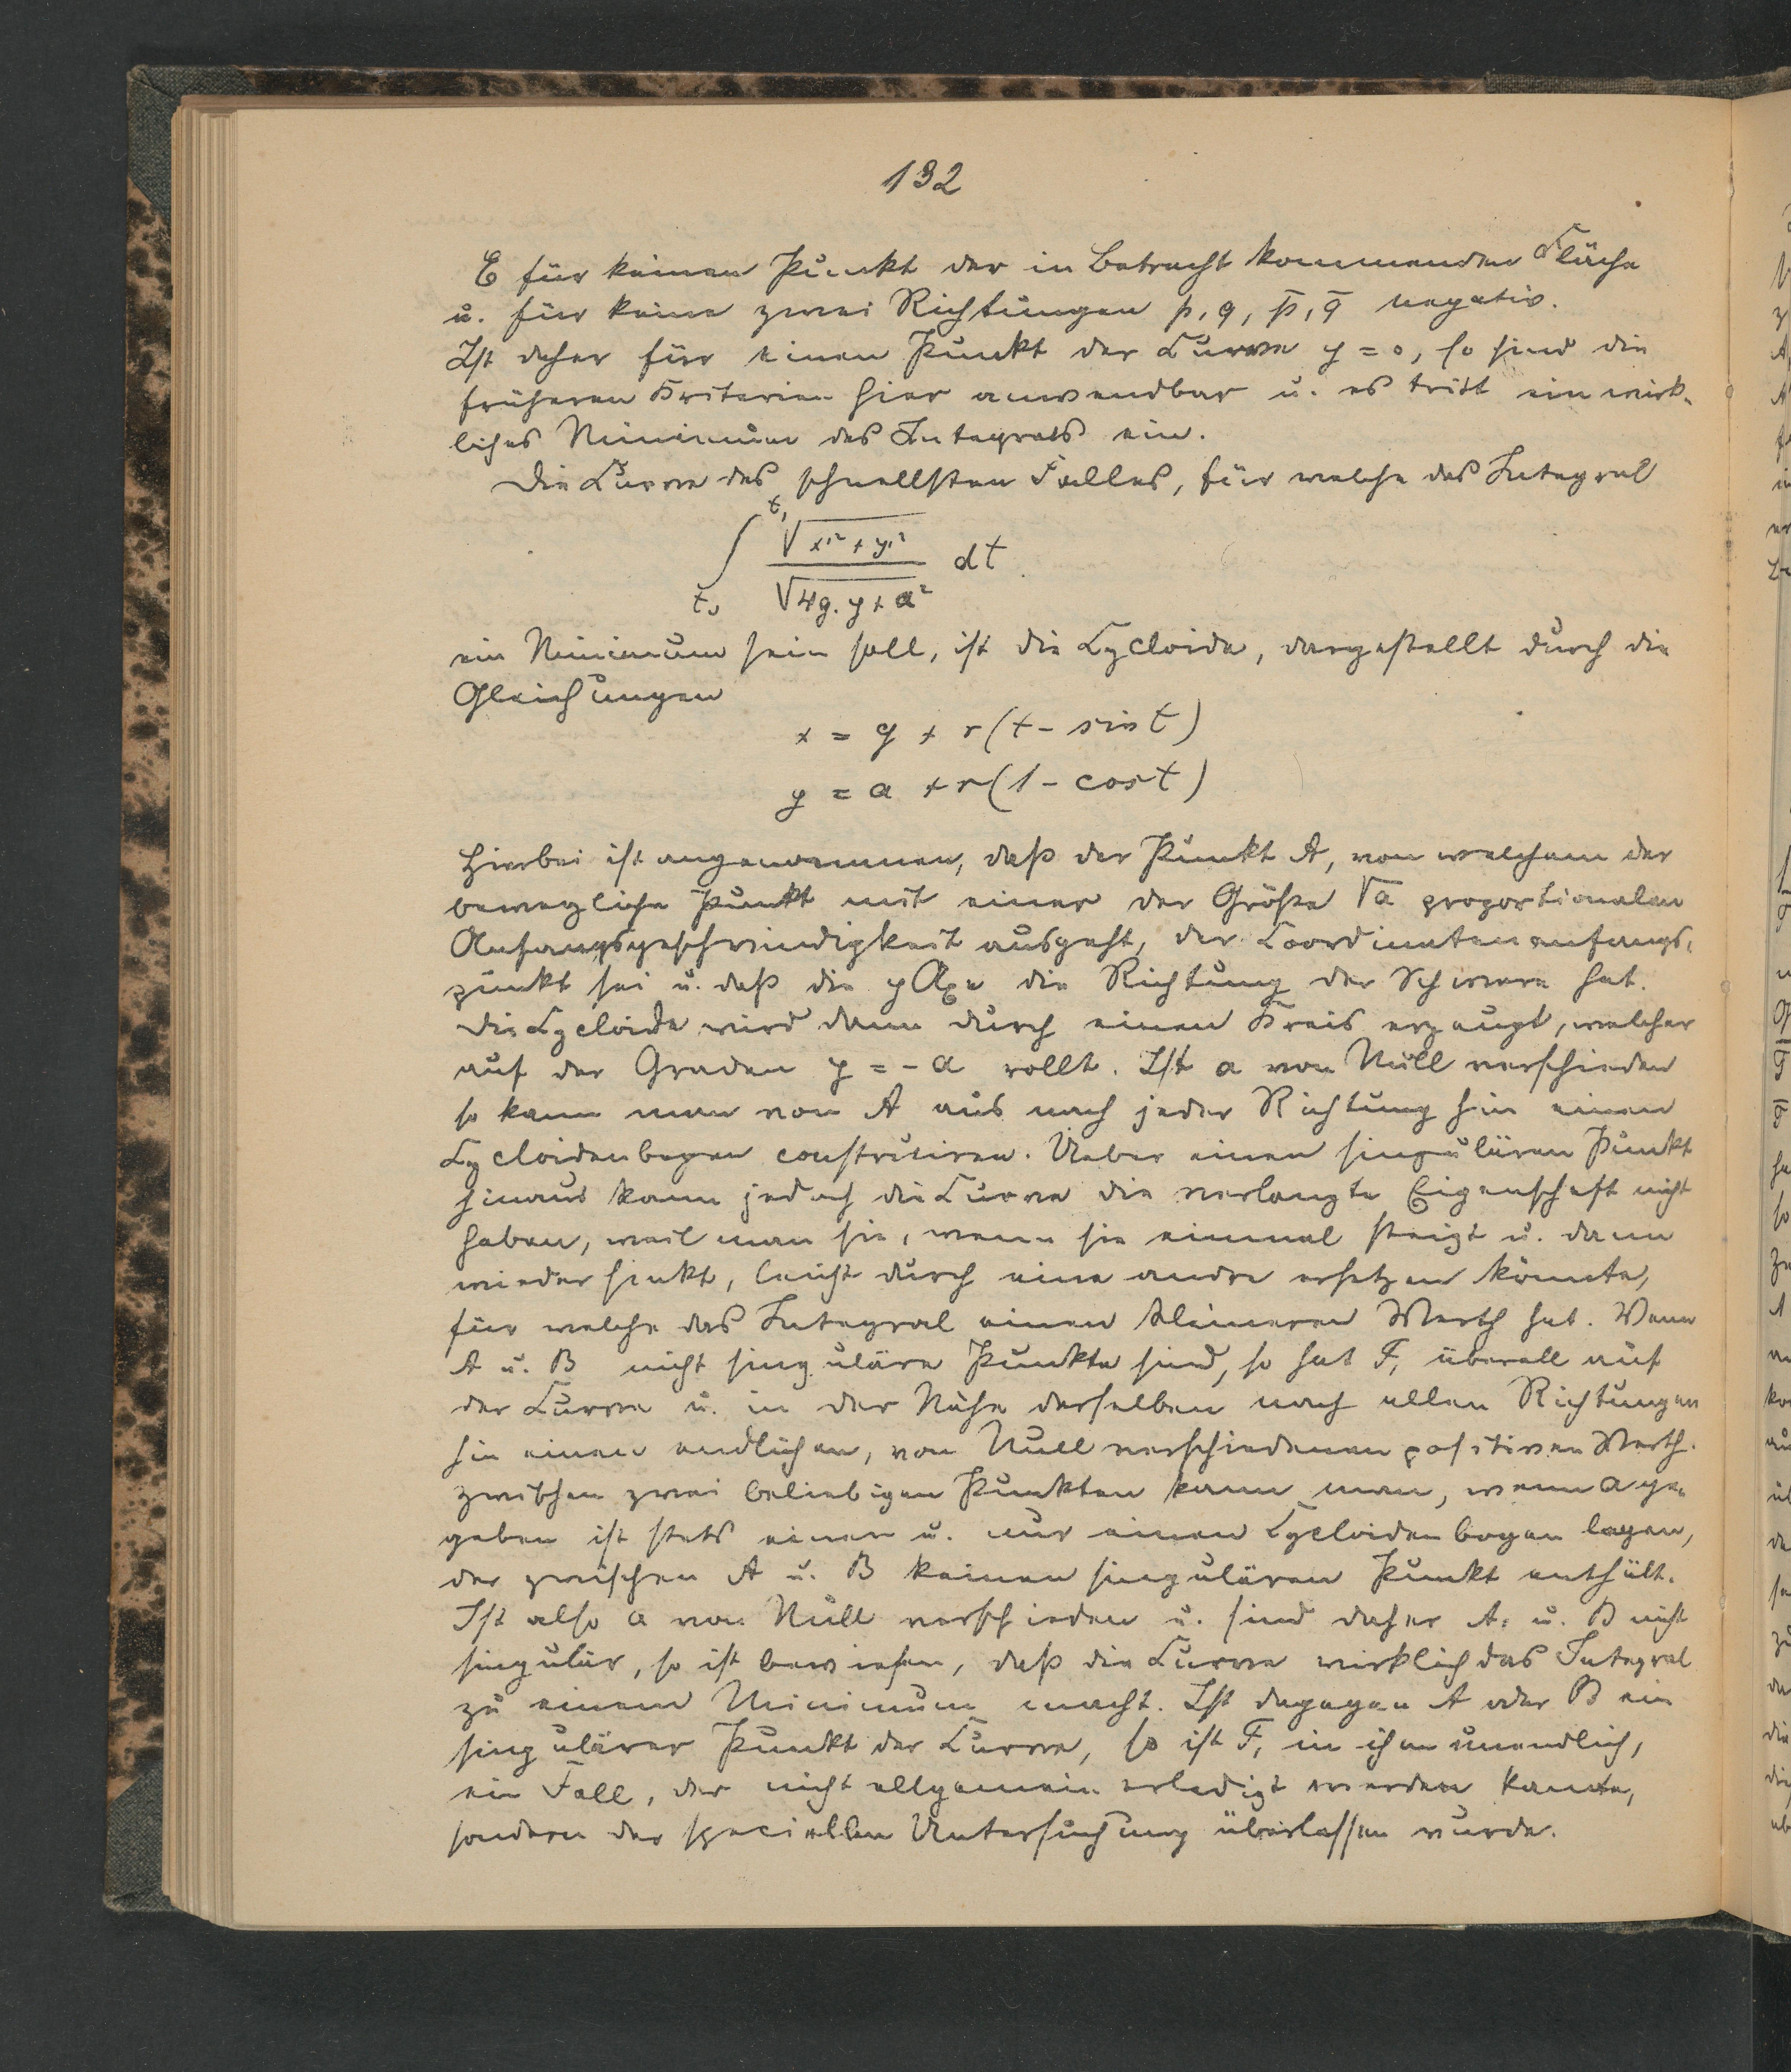 132
E für keinen Punkt der in Betracht kommenden Fläche
u. für keine zwei Richtungen p, q, p̄, q̄ negativ.
Ist daher für einen Punkt der Curve y = 0, so sind die
früheren Kriterien hier anwendbar u. es tritt ein wirk-
liches Minimum des Integrals ein.
Die Curve des schnellsten Falles, für welche das Integral
∫_{t_0}^{t_1} √(x'² + y'²) / √(4g.y + a²) dt
ein Minimum sein soll, ist die Cycloide, dargestellt durch die
Gleichungen
x = y + r(t - sin t)
y = a + r(1 - cos t)
Hierbei ist angenommen, daß der Punkt A, von welchem der
bewegliche Punkt mit einer der Größe √a proportionalen
Anfangsgeschwindigkeit ausgeht, der Coordinatenanfangs-
punkt sei u. daß die y Axe die Richtung der Schwere hat.
Die Cycloide wird dann durch einen Kreis erzeugt, welcher
auf der Graden y = - a rollt. Ist a von Null verschieden
so kann man von A aus nach jeder Richtung hin einen
Cycloidenbogen construiren. Ueber einen singulären Punkt
hinaus kann jedoch die Curve die verlangte Eigenschaft nicht
haben, weil man sie, wenn sie einmal steigt u. dann
wieder sinkt, leicht durch eine andre ersetzen könnte,
für welche das Integral einen kleineren Werth hat. Wenn
A u. B nicht singuläre Punkte sind, so hat F₁ überall auf
der Curve u. in der Nähe derselben nach allen Richtungen
hin einen endlichen, von Null verschiedenen positiven Werth.
Zwischen zwei beliebigen Punkten kann man, wenn a ge-
geben ist stets einen u. nur einen Cycloidenbogen legen,
der zwischen A u. B keinen singulären Punkt enthält.
Ist also a von Null verschieden u. sind daher A. u. B nicht
singulär, so ist bewiesen, daß die Curve wirklich das Integral
zu einem Minimum macht. Ist dagegen A oder B ein
singulärer Punkt der Curve, so ist F₁ in ihm unendlich,
ein Fall, der nicht allgemein erledigt werden kannte,
sondern der speciellen Untersuchung überlassen wurde.